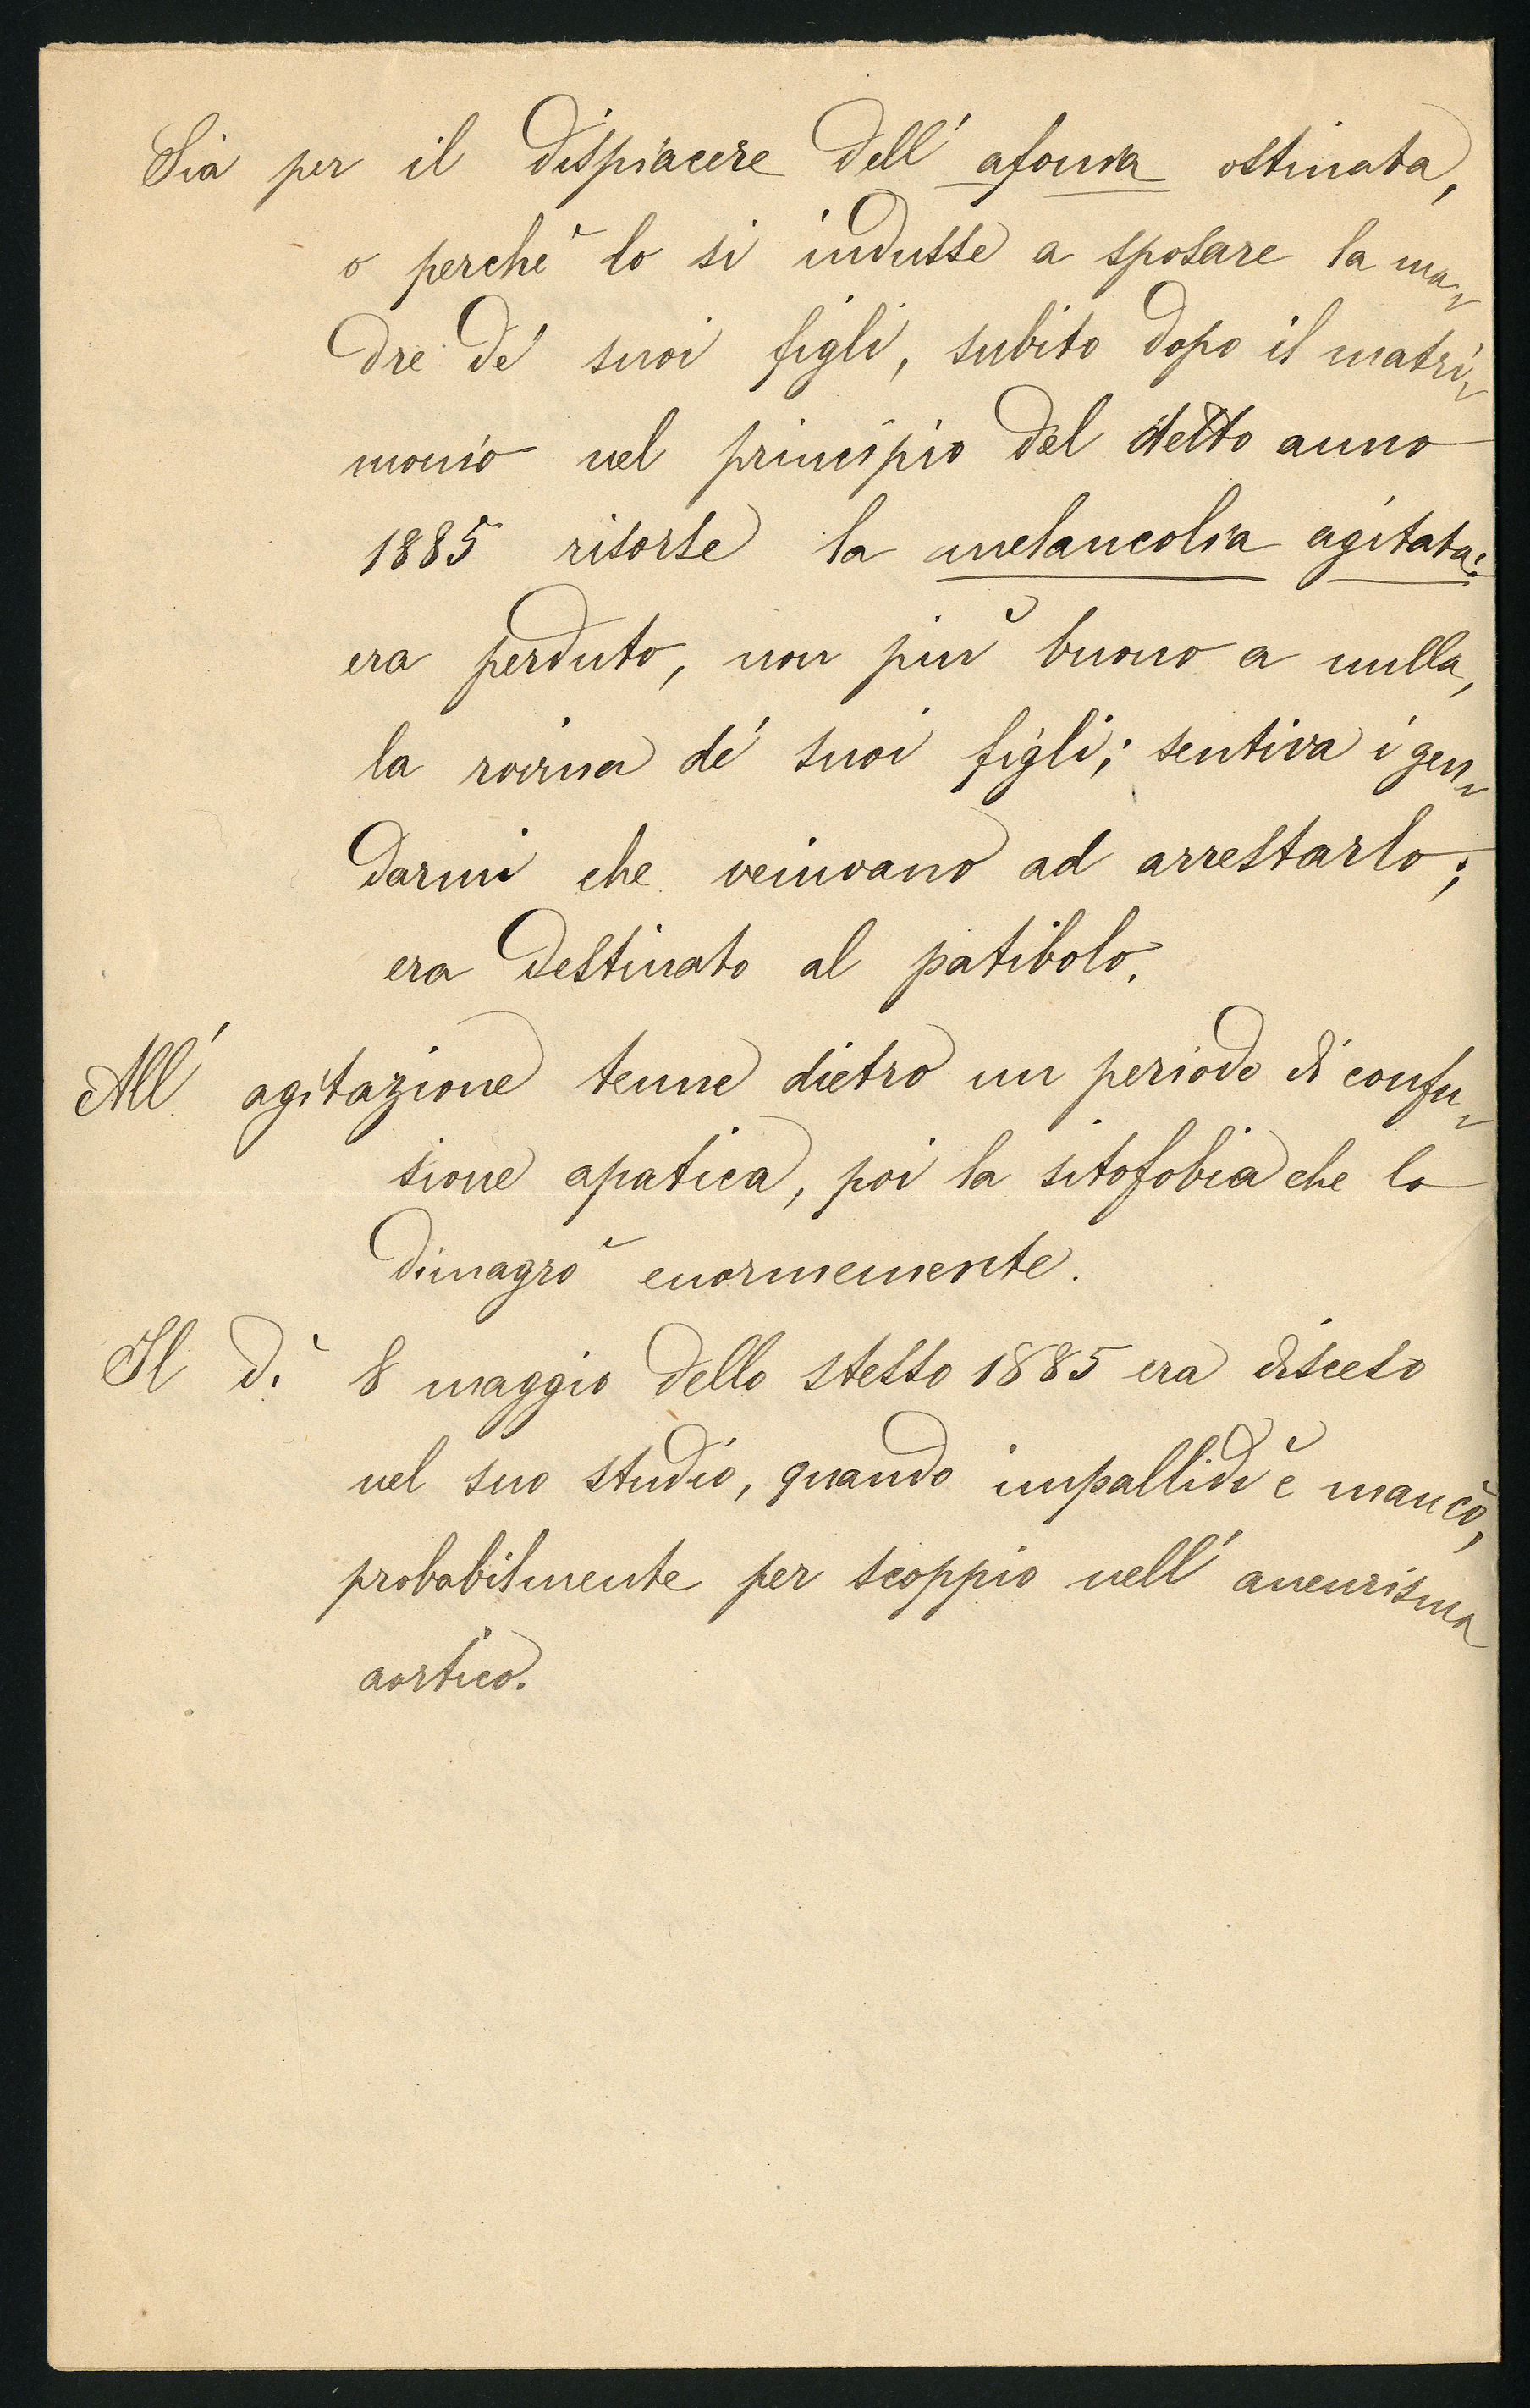 Sia per il dispiacere dell' afonia ostinata,
o perchè lo si indusse a sposare la ma-
dre de' suoi figli, subito dopo il matri-
monio nel principio del detto anno
1885 risorse la melancolia agitata:
era perduto, non più buono a nulla,
la rovina de' suoi figli; sentiva i gen-
darmi che venivano ad arrestarlo;
era destinato al patibolo.
All' agitazione tenne dietro un periodo di confu-
sione apatica, poi la sitofobia che lo
dimagrò enormemente.
Il dì 8 maggio dello stesso 1885 era disceso
nel suo studio, quando impallidì e mancò,
probabilmente per scoppio nell' aneurisma
aortico.